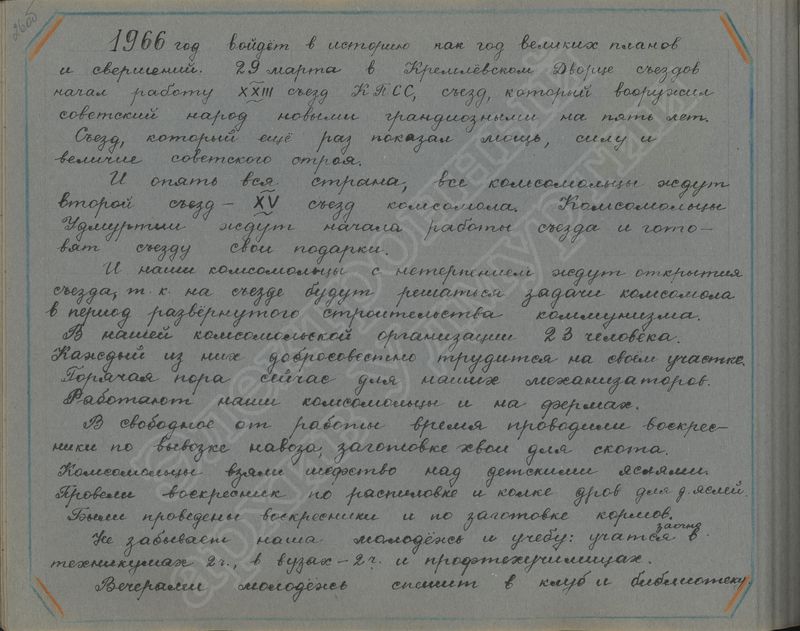 2600
1966 год войдёт в историю как год великих планов
и свершений. 29 марта в Кремлёвском Дворце съездов
начал работу XXIII съезд КПСС, съезд, который вооружил
советский народ новыми грандиозными на пять лет.
Съезд, который ещё раз показал мощь, силу и
величие советского строя.
И опять вся страна, все комсомольцы ждут
второй съезд - XV съезд комсомола. Комсомольцы
Удмуртии ждут начала работы съезда и гото-
вят съезду свои подарки.
И наши комсомольцы с нетерпением ждут открытия
съезда, т.к. на съезде будут решаться задачи комсомола
в период развёрнутого строительства коммунизма.
В нашей комсомольской организации 23 человека.
Каждый из них добросовестно трудится на своём участке.
Горячая пора сейчас для наших механизаторов.
Работают наши комсомольцы и на фермах.
В свободное от работы время проводили воскрес-
ники по вывозке навоза, заготовке хвои для скота.
Комсомольцы взяли шефство над детскими яслями.
Провели воскресник по распиловке и колке дров для д.яслей.
Были проведены воскресники и по заготовке кормов.
Не забывает наша молодёжь и учебу: учатся заочно в
техникумах 2 ч., в вузах - 2 ч. и профтехучилищах.
Вечерами молодёжь спешит в клуб и библиотеку.